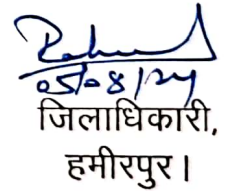 05/08/24
जिलाधिकारी,
हमीरपुर।